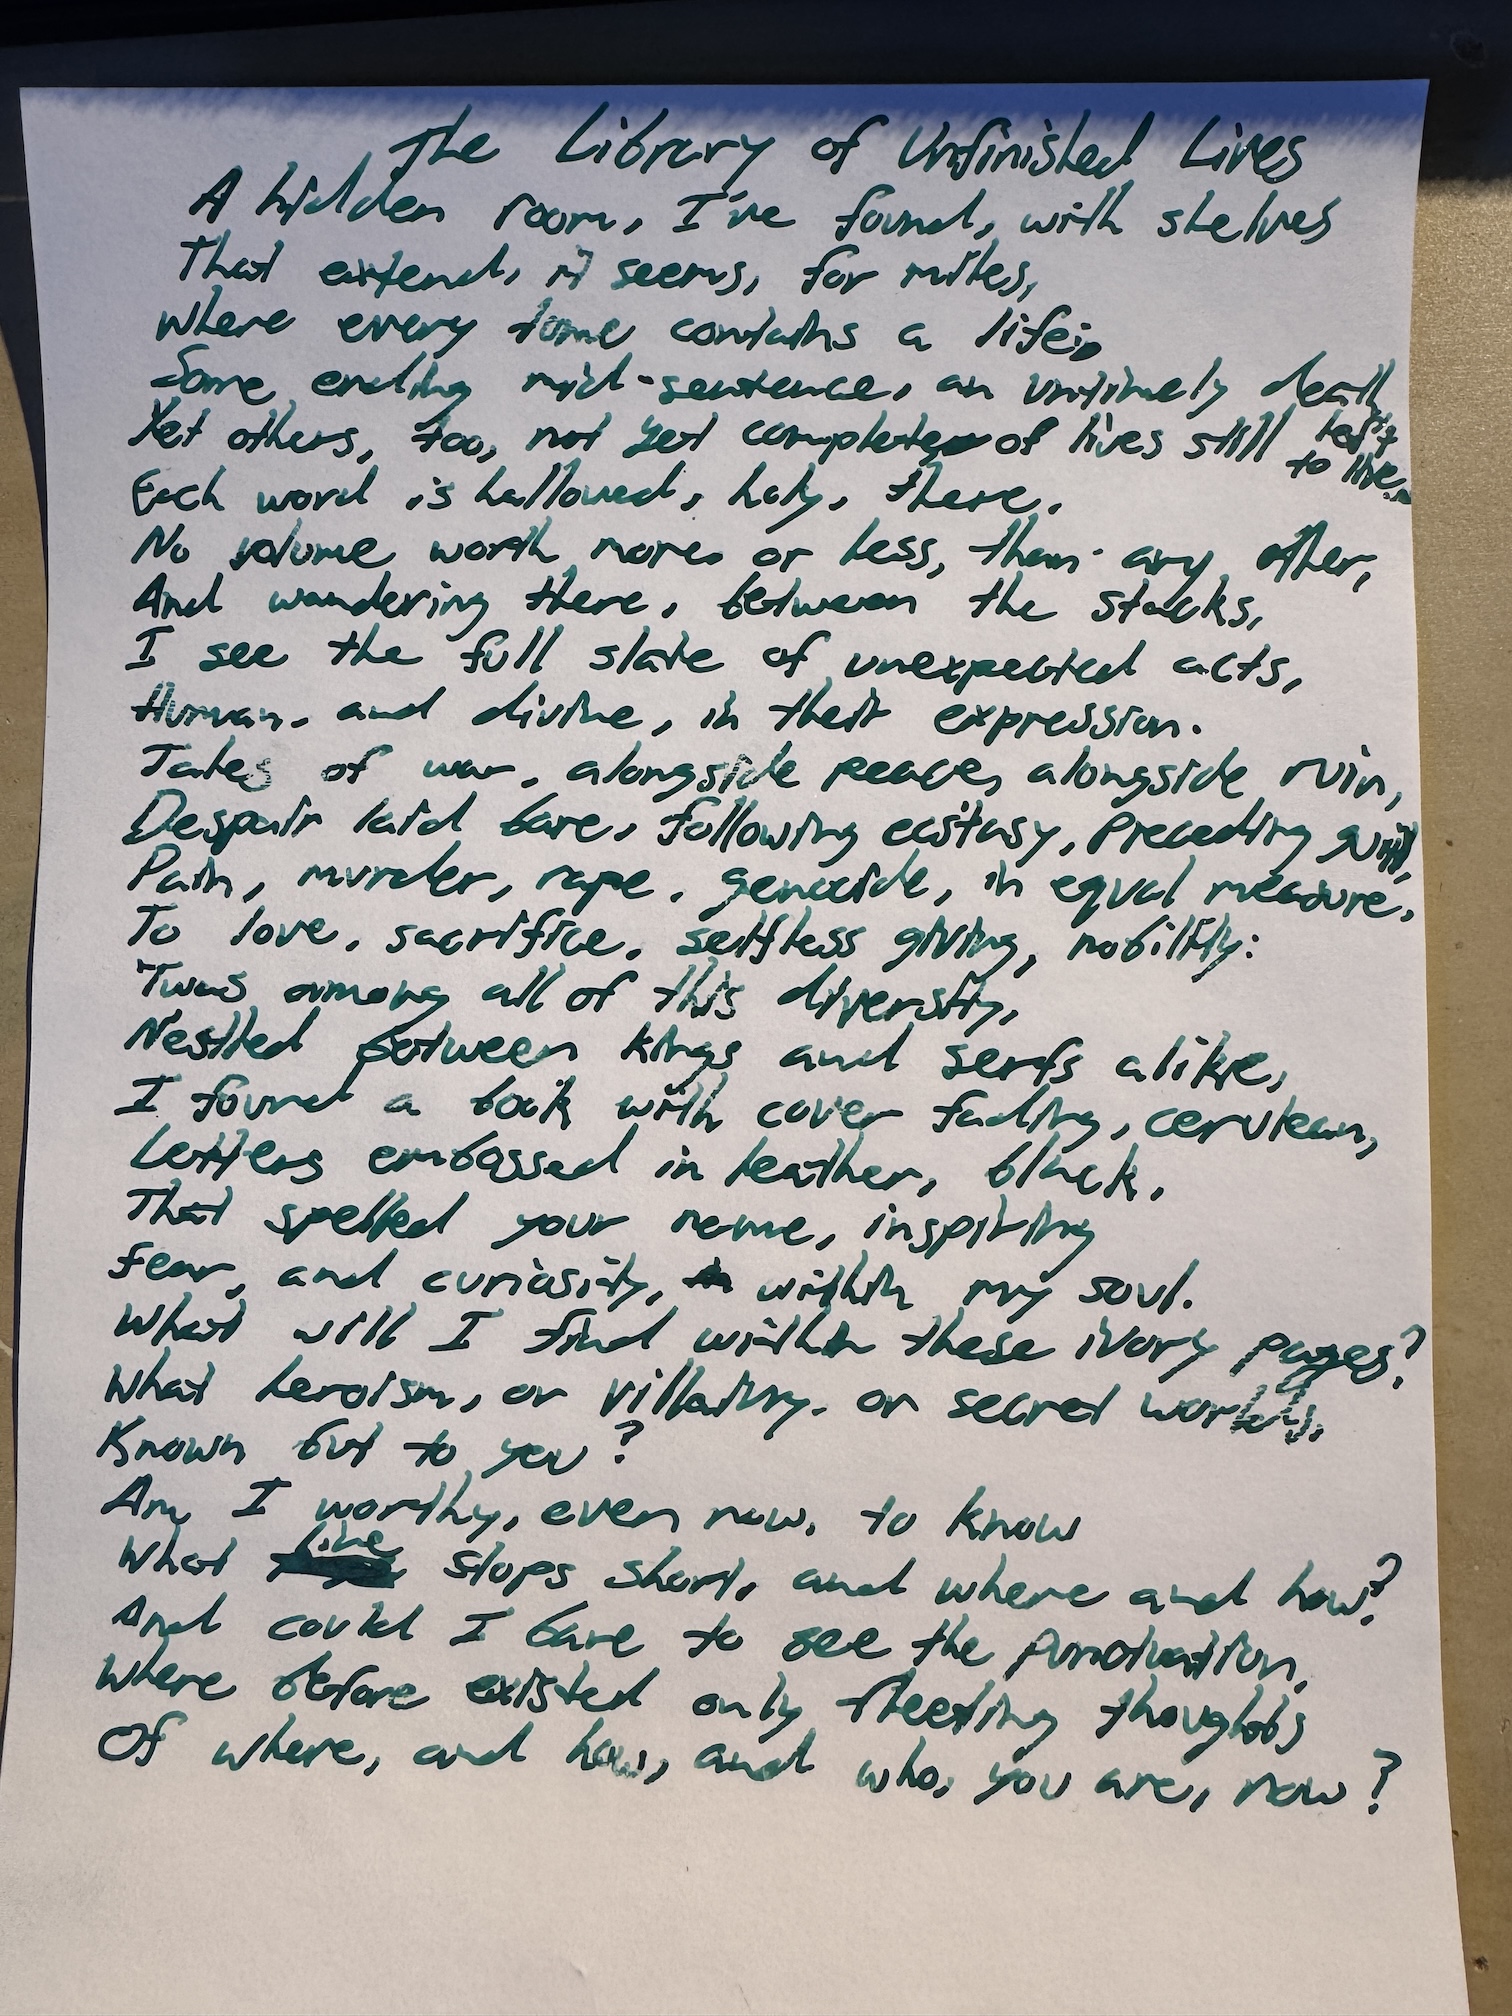 The Library of Unfinished Lives
A hidden room, I've found, with shelves
That extend, it seems, for miles,
Where every tome contains a life;
Some, ending mid-sentence, an untimely death,
Yet others, too, not yet complete, of lives still left to live.
Each word is hallowed, holy, there.
No volume worth more, or less, than any other,
And wandering there, between the stacks,
I see the full slate of unexpected acts,
Human, and divine, in their expression.
Tales of war, alongside peace, alongside ruin,
Despair laid bare, following ecstasy, preceding guilt,
Pain, murder, rape, genocide, in equal measure,
To love, sacrifice, selfless giving, nobility:
'Twas among all of this diversity,
Nestled between kings and serfs alike,
I found a book with cover fading, cerulean,
Letters embossed in leather, black,
That spelled your name, inspiring
Fear, and curiosity, within my soul.
What will I find within these ivory pages?
What heroism, or villainy, or secret worlds,
Known but to you?
Am I worthy, even now, to know
What line stops short, and where and how?
And could I bare to see the punctuation,
Where before existed only fleeting thoughts
Of where, and how, and who, you are, now?